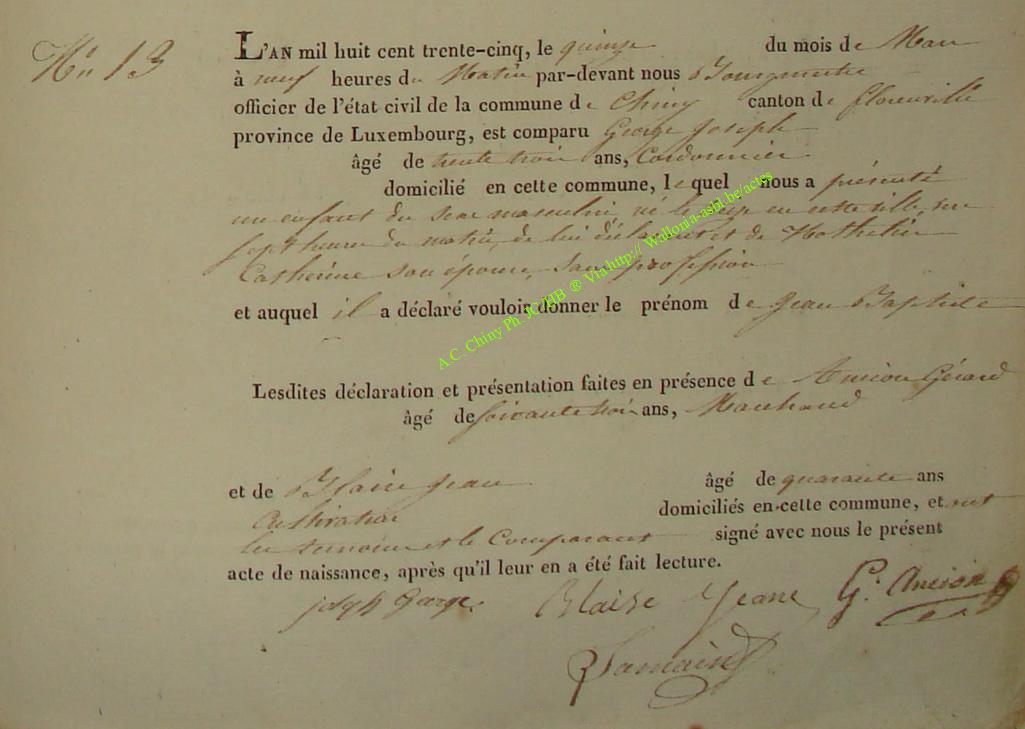 No 13
L'AN mil huit cent trente-cinq, le quinze du mois de Mars
à neuf heures du Matin par-devant nous Bourgmestre
officier de l'état civil de la commune de Chiny canton de florenville
province de Luxembourg, est comparu George Joseph
âgé de trente trois ans, Cordonnier
domicilié en cette commune, lequel nous a présenté
un enfant du sexe masculin, né le en cette ville, sur
sept heures du matin, de lui déclarant et de Hothelin
Catherine son épouse, sans profession
et auquel il a déclaré vouloir donner le prénom de Jean Baptiste
A.C. Chiny Ph. JC HB ® Via http:// Wallonia-asbl.be/actes
Lesdites déclaration et présentation faites en présence de Ancion Gérard
âgé de soixante trois ans, Marchand
et de Blaise Jean âgé de quarante ans
Cultivateur domiciliés en cette commune, et ont
les temoins et le Comparant signé avec nous le présent
acte de naissance, après qu'il leur en a été fait lecture.
joseph George Blaise Jean G. Ancion